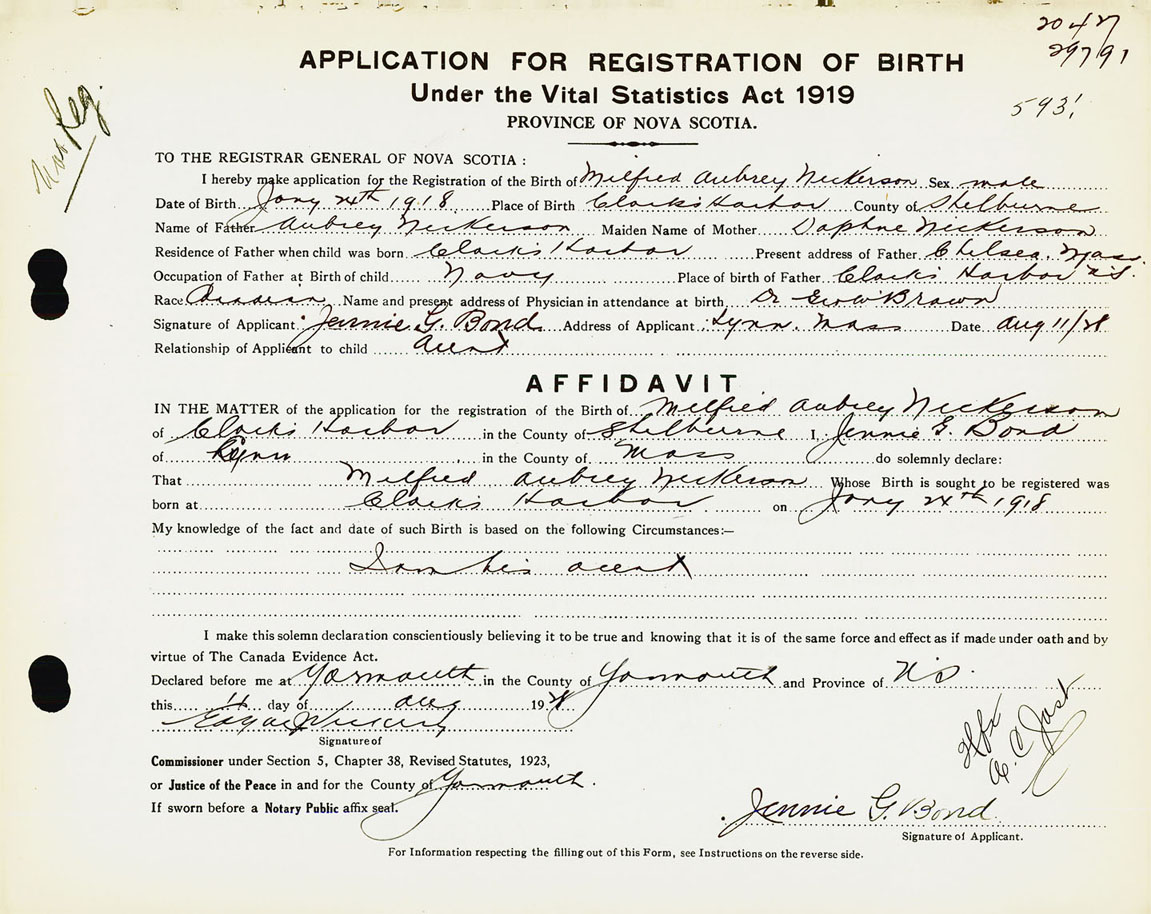 2047
29791
593!
Not Reg.
APPLICATION FOR REGISTRATION OF BIRTH
Under the Vital Statistics Act 1919
PROVINCE OF NOVA SCOTIA.
TO THE REGISTRAR GENERAL OF NOVA SCOTIA :
I hereby make application for the Registration of the Birth of Milfred Aubrey Nickerson Sex male
Date of Birth Jany 24th 1918 Place of Birth Clarks Harbor County of Shelburne
Name of Father Aubrey Nickerson Maiden Name of Mother Daphne Nickerson
Residence of Father when child was born Clarks Harbor Present address of Father Chelsea, Mass.
Occupation of Father at Birth of child Navy Place of birth of Father Clarks Harbor NS
Race Canadian Name and present address of Physician in attendance at birth Dr Brown
Signature of Applicant Jennie G. Bond Address of Applicant Lynn. Mass Date Aug 11/28
Relationship of Applicant to child Aunt
AFFIDAVIT
IN THE MATTER of the application for the registration of the Birth of Milfred Aubrey Nickerson
of Clarks Harbor in the County of Shelburne I, Jennie G. Bond
of Lynn in the County of Mass do solemnly declare:
That Milfred Aubrey Nickerson Whose Birth is sought to be registered was
born at Clarks Harbor on Jany 24th 1918
My knowledge of the fact and date of such Birth is based on the following Circumstances:—
I am his aunt
I make this solemn declaration conscientiously believing it to be true and knowing that it is of the same force and effect as if made under oath and by
virtue of The Canada Evidence Act.
Declared before me at Yarmouth in the County of Yarmouth and Province of NS
this 11 day of Aug 1928
Signature of
Commissioner under Section 5, Chapter 38, Revised Statutes, 1923,
or Justice of the Peace in and for the County of Yarmouth.
If sworn before a Notary Public affix seal.
Hfx
A. C. Jost
Jennie G. Bond
Signature of Applicant.
For Information respecting the filling out of this Form, see Instructions on the reverse side.